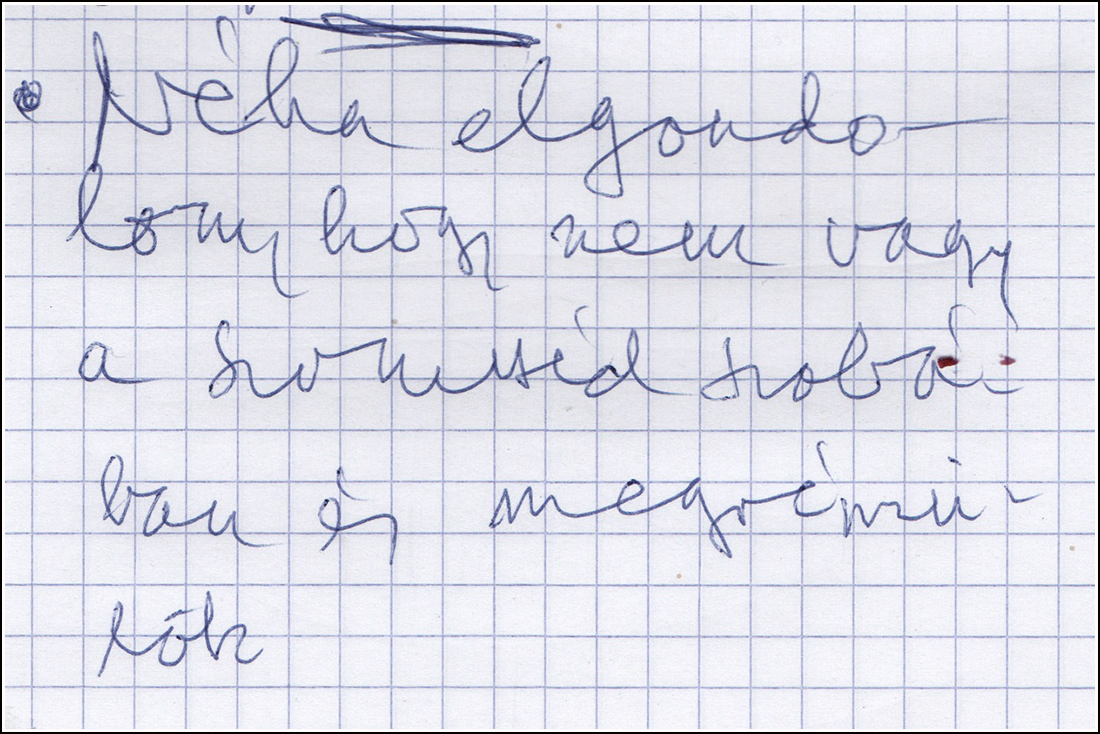 Néha elgondo-
lom hogy nem vagy
a szomszéd szobá-
ban és megrémü-
lök